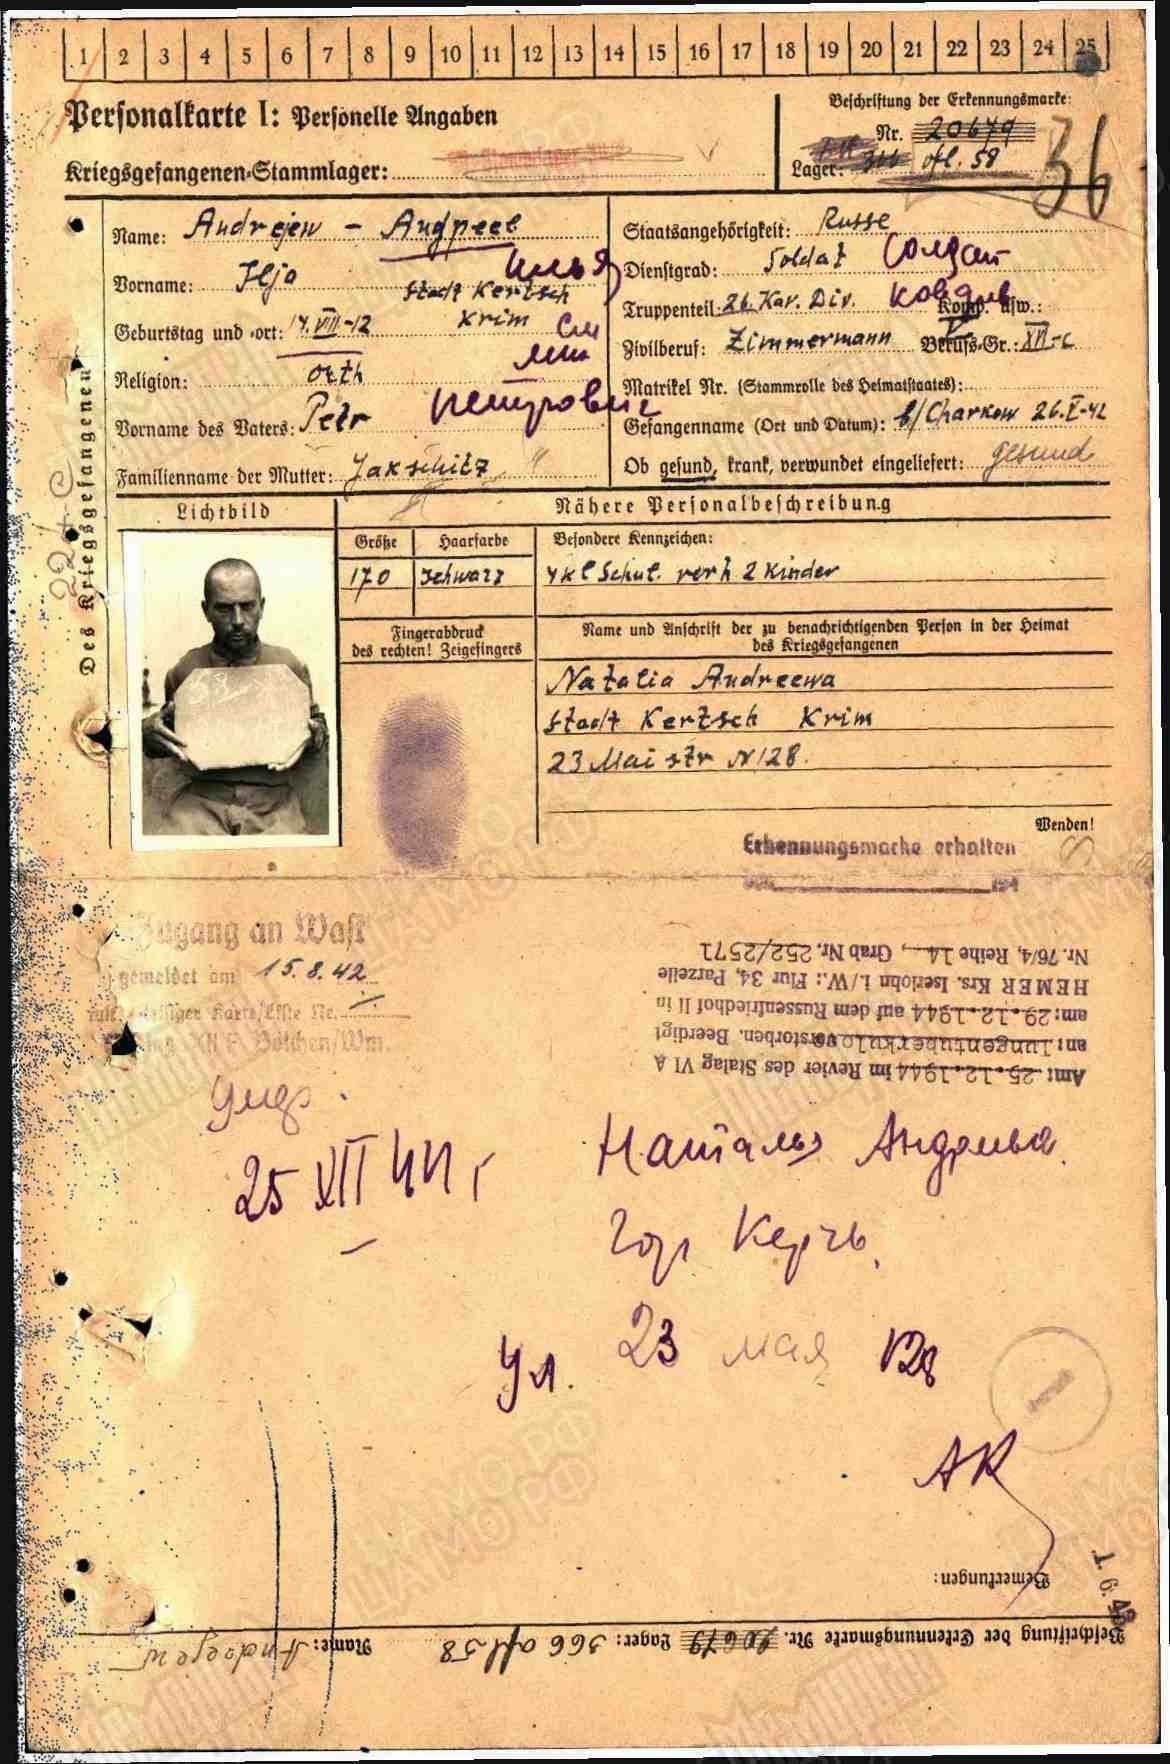 1 2 3 4 5 6 7 8 9 10 11 12 13 14 15 16 17 18 19 20 21 22 23 24 25
Personalkarte I: Personelle Angaben
Kriegsgefangenen-Stammlager:
Beschriftung der Erkennungsmarke:
Nr. 20679
Lager: 366 ofl. 58
36
Des Kriegsgefangenen
Name: Andrejew – Андреев
Vorname: Iljo Илья
Geburtstag und -ort: 14.VIII-12 Stadt Kertsch
Krim
Religion: orth
Vorname des Vaters: Petr Петрович
Familienname der Mutter: Jakschitz
Staatsangehörigkeit: Russe
Dienstgrad: Soldat Солдат
Truppenteil: 26. Kav. Div. Komp. usw.:
Zivilberuf: Zimmermann Berufs-Gr.: XII-c
Matrikel Nr. (Stammrolle des Heimatstaates):
Gefangenname (Ort und Datum): b/Charkow 26.V-42
Ob gesund, krank, verwundet eingeliefert: gesund
Lichtbild
Nähere Personalbeschreibung
Größe Haarfarbe Besondere Kennzeichen:
170 schwarz 4 Kl Schul. verh 2 Kinder
Fingerabdruck
des rechten! Zeigefingers
Name und Anschrift der zu benachrichtigenden Person in der Heimat
des Kriegsgefangenen
Natalia Andreewa
Stadt Kertsch Krim
23 Mai str N 128.
Wenden!
Erkennungsmarke erhalten
Zugang an Wast
gemeldet am 15.8.42
Am: 25.12.1944 im Revier des Stalag VI A
an: Lungentuberkulo verstorben. Beerdigt
am: 29.12.1944 auf dem Russenfriedhof II in
HEMER Krs. Iserlohn i./W.: Flur 34, Parzelle
Nr. 76/4, Reihe 14, Grab Nr. 252/2571
25 XII 44 г
Наталья Андреева
гор Керчь,
Ул. 23 мая 128
АК
Bemerkungen:
Beschriftung der Erkennungsmarke Nr. 20679 Lager: 366 ofl 58 Name: Andrejew